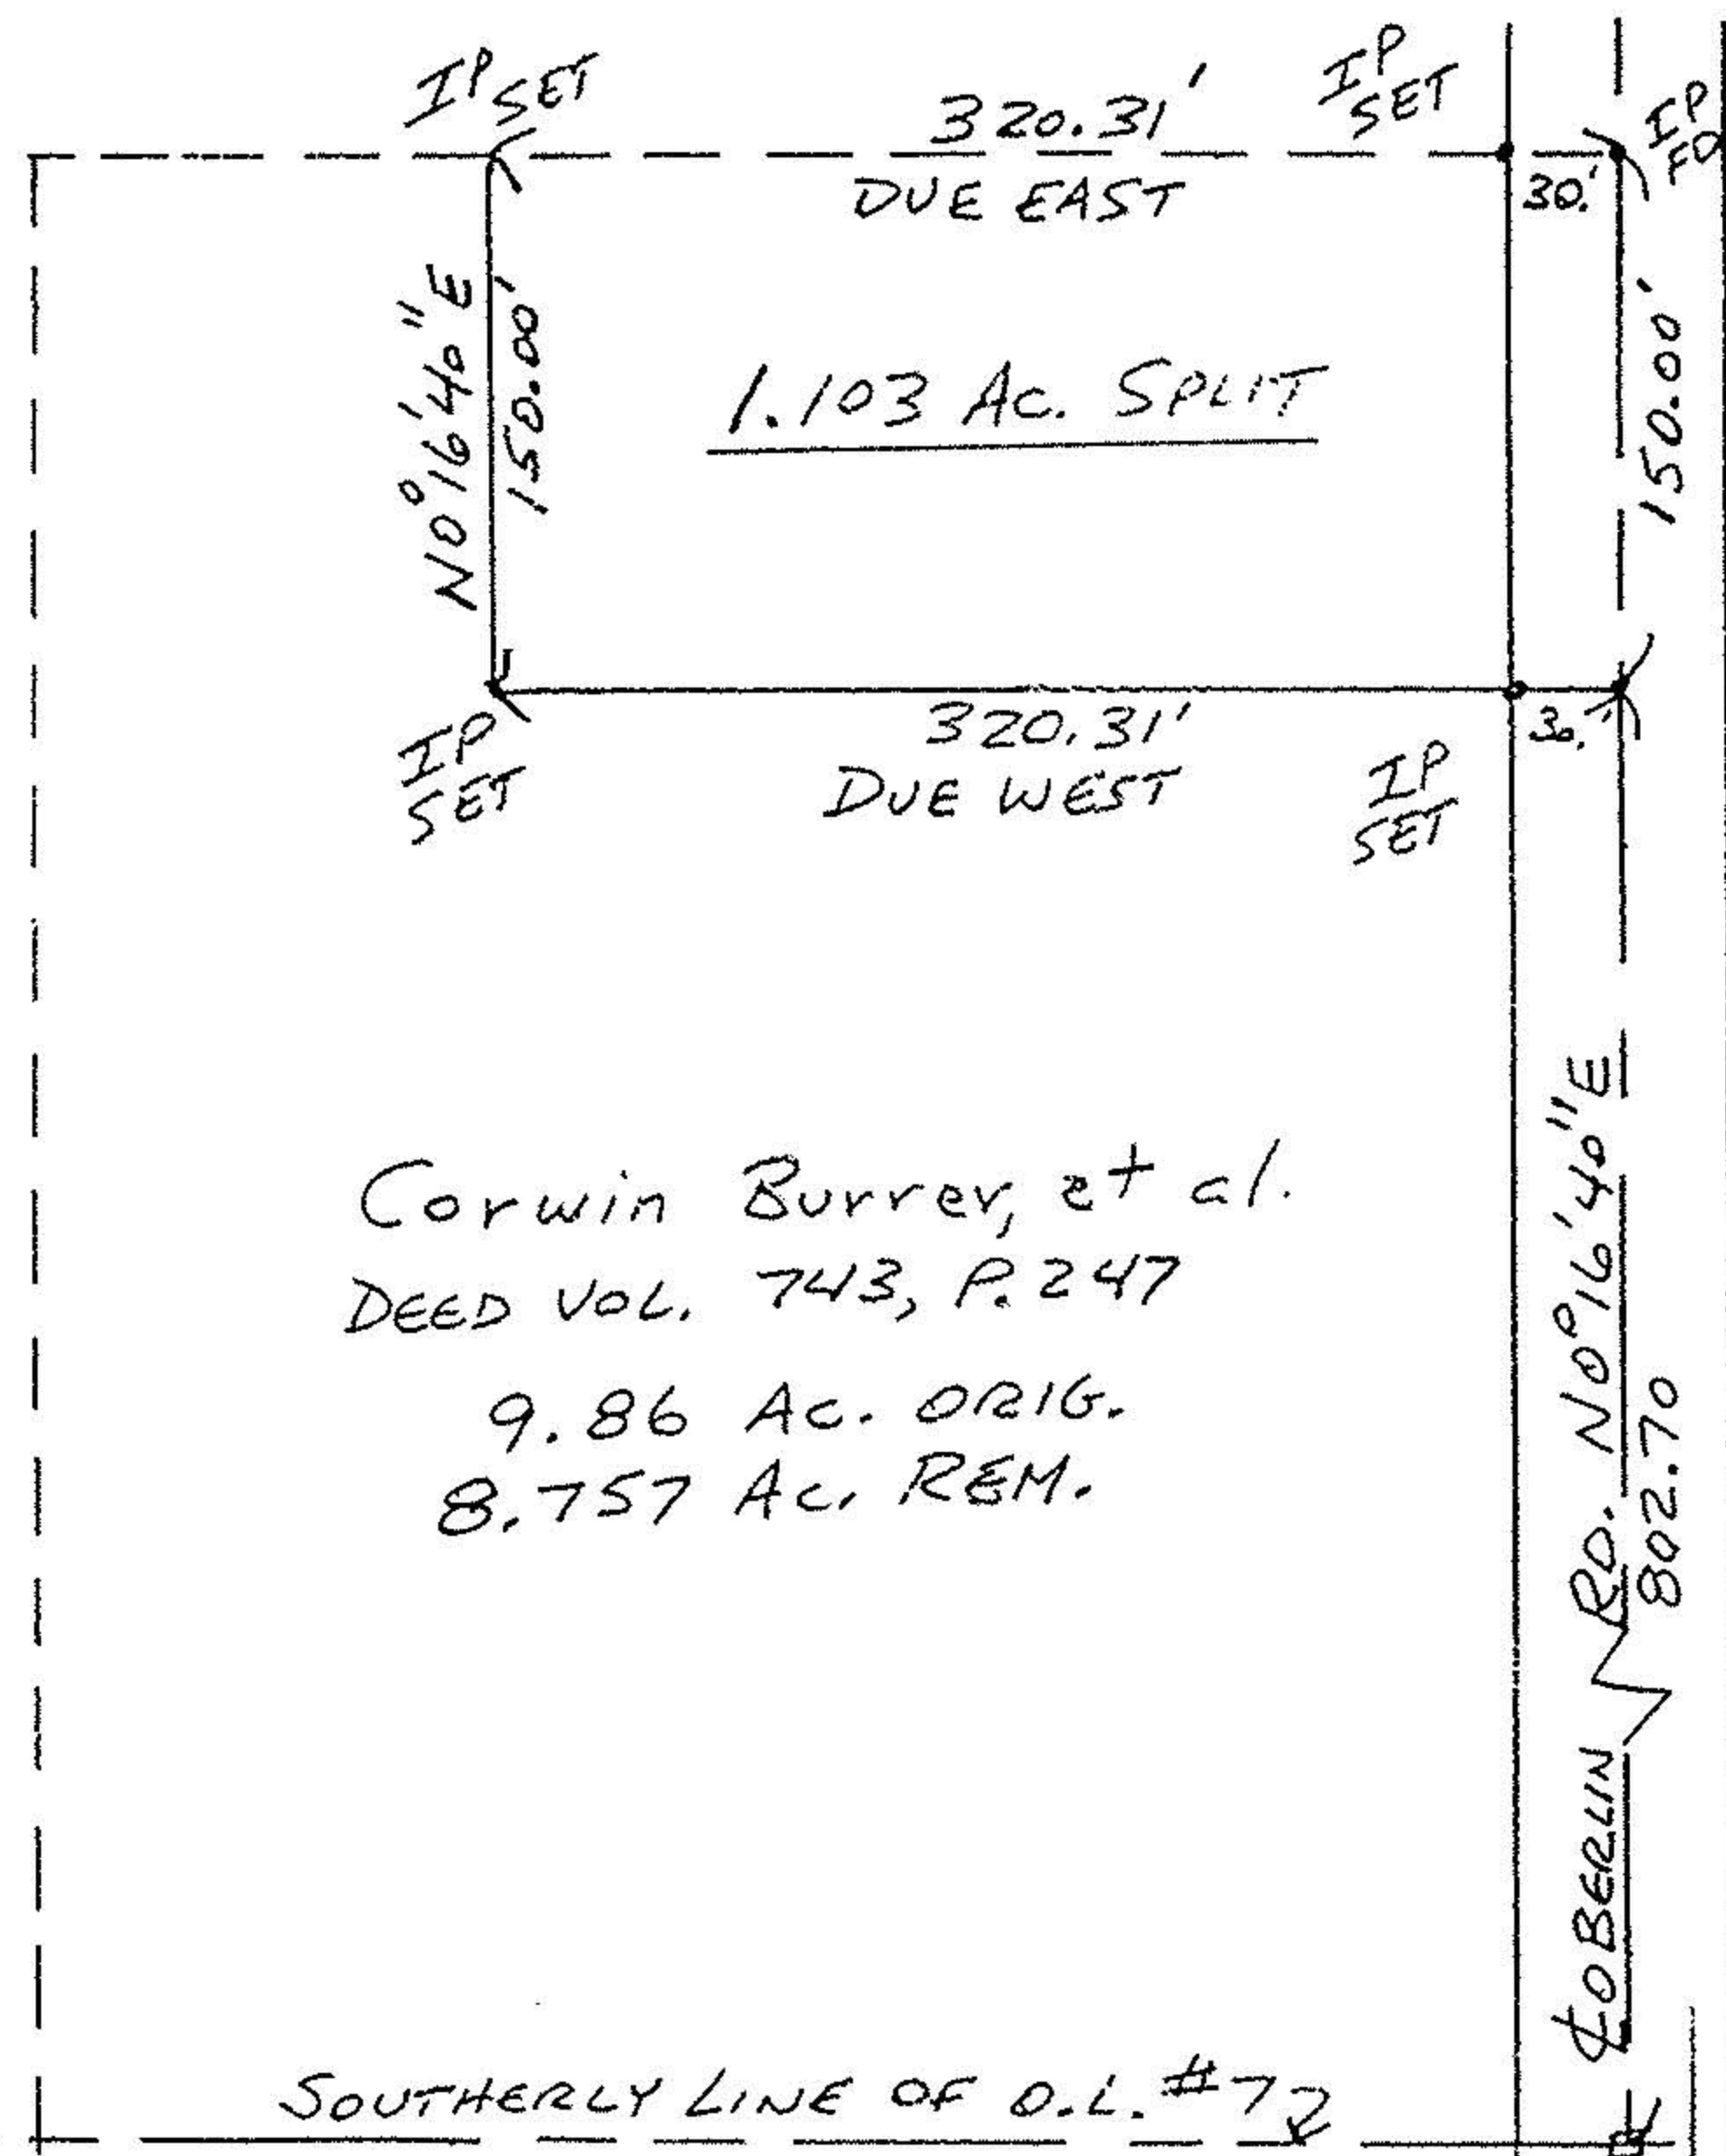 IP SET
320.31'
DUE EAST
IP
SET
IP
FD
30.'
N0°16'40"E
150.00'
1.103 AC. SPLIT
150.00'
320.31'
DUE WEST
30.'
IP
SET
IP
SET
Corwin Burrer, et al.
DEED VOL. 743, P. 247
9.86 AC. ORIG.
8.757 AC. REM.
℄ OBERLIN RD. N0°16'40"E
802.70
SOUTHERLY LINE OF O.L. #72